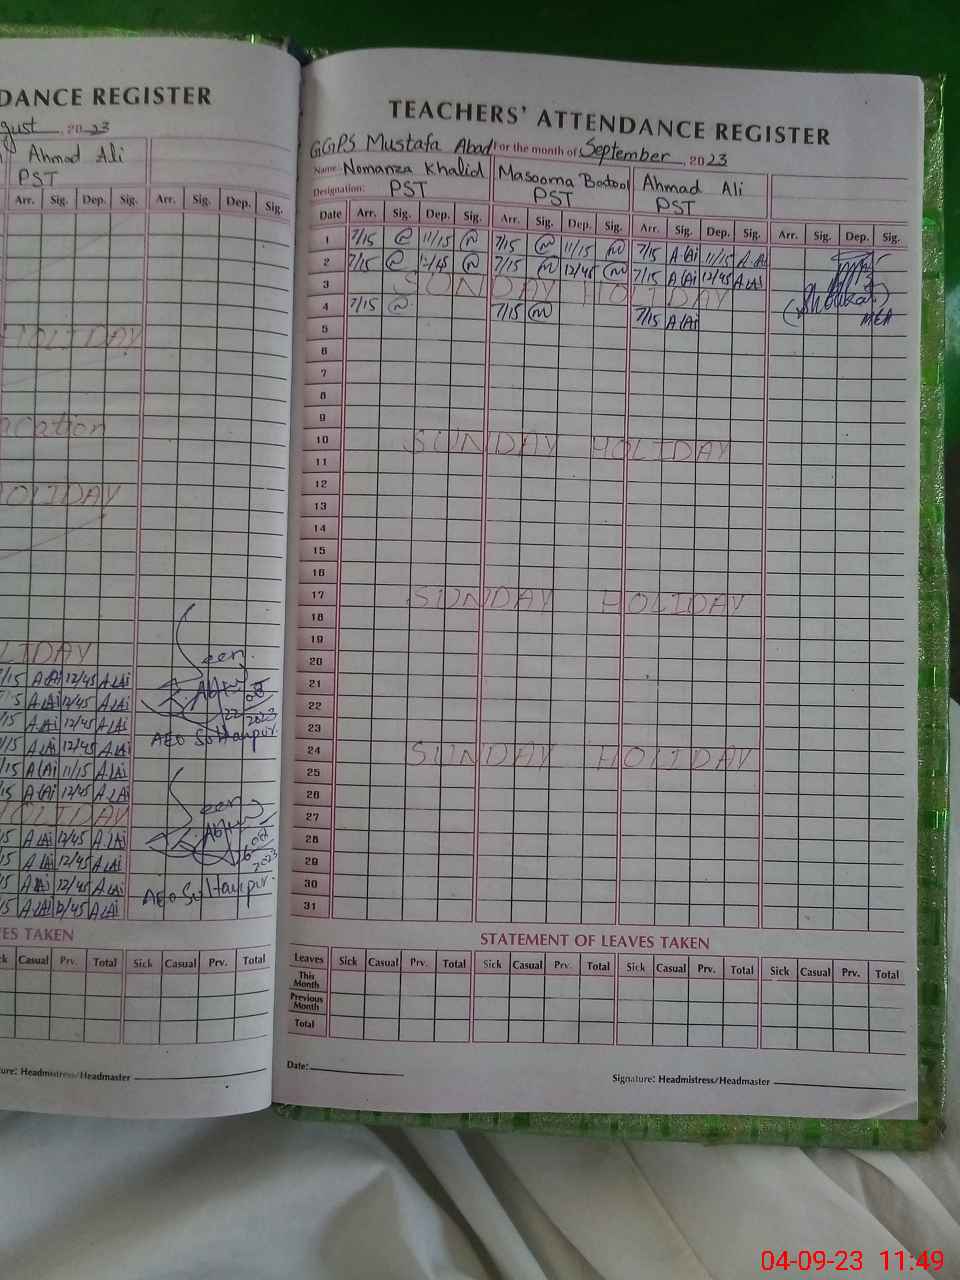 DANCE REGISTER
gust 2023
Ahmad Ali
PST
Arr. Sig. Dep. Sig. Arr. Sig. Dep. Sig.
HOLIDAY
acation
HOLIDAY
LIDAY
/15 A.Ali 12/45 A.Ali
/15 A.Ali 12/45 A.Ali
/15 A.Ali 12/45 A.Ali
/15 A.Ali 12/45 A.Ali
/15 A.Ali 11/15 A.Ali
/15 A.Ali 12/45 A.Ali
HOLIDAY
/15 A.Ali 12/45 A.Ali
/15 A.Ali 12/45 A.Ali
/15 A.Ali 12/45 A.Ali
/15 A.Ali 12/45 A.Ali
Seen.
22/08/2023
AEO Sultanpur.
Seen
08
2023
AEO Sultanpur.
ES TAKEN
ck Casual Prv. Total Sick Casual Prv. Total
ure: Headmistress/Headmaster
TEACHERS' ATTENDANCE REGISTER
GGPS Mustafa Abad For the month of September 2023
Name: Nomanza Khalid Masooma Batool Ahmad Ali
Designation: PST PST PST
Date Arr. Sig. Dep. Sig. Arr. Sig. Dep. Sig. Arr. Sig. Dep. Sig. Arr. Sig. Dep. Sig.
1 7/15 11/15 7/15 11/15 7/15 A.Ali 11/15 A.Ali
2 7/15 12/45 7/15 12/45 7/15 A.Ali 12/45 A.Ali
3 SUNDAY HOLIDAY
4 7/15 7/15 7/15 A.Ali
MEA
5
6
7
8
9
10 SUNDAY HOLIDAY
11
12
13
14
15
16
17 SUNDAY HOLIDAY
18
19
20
21
22
23
24 SUNDAY HOLIDAY
25
26
27
28
29
30
31
STATEMENT OF LEAVES TAKEN
Leaves Sick Casual Prv. Total Sick Casual Prv. Total Sick Casual Prv. Total Sick Casual Prv. Total
This Month
Previous Month
Total
Date:
Signature: Headmistress/Headmaster
04-09-23 11:49